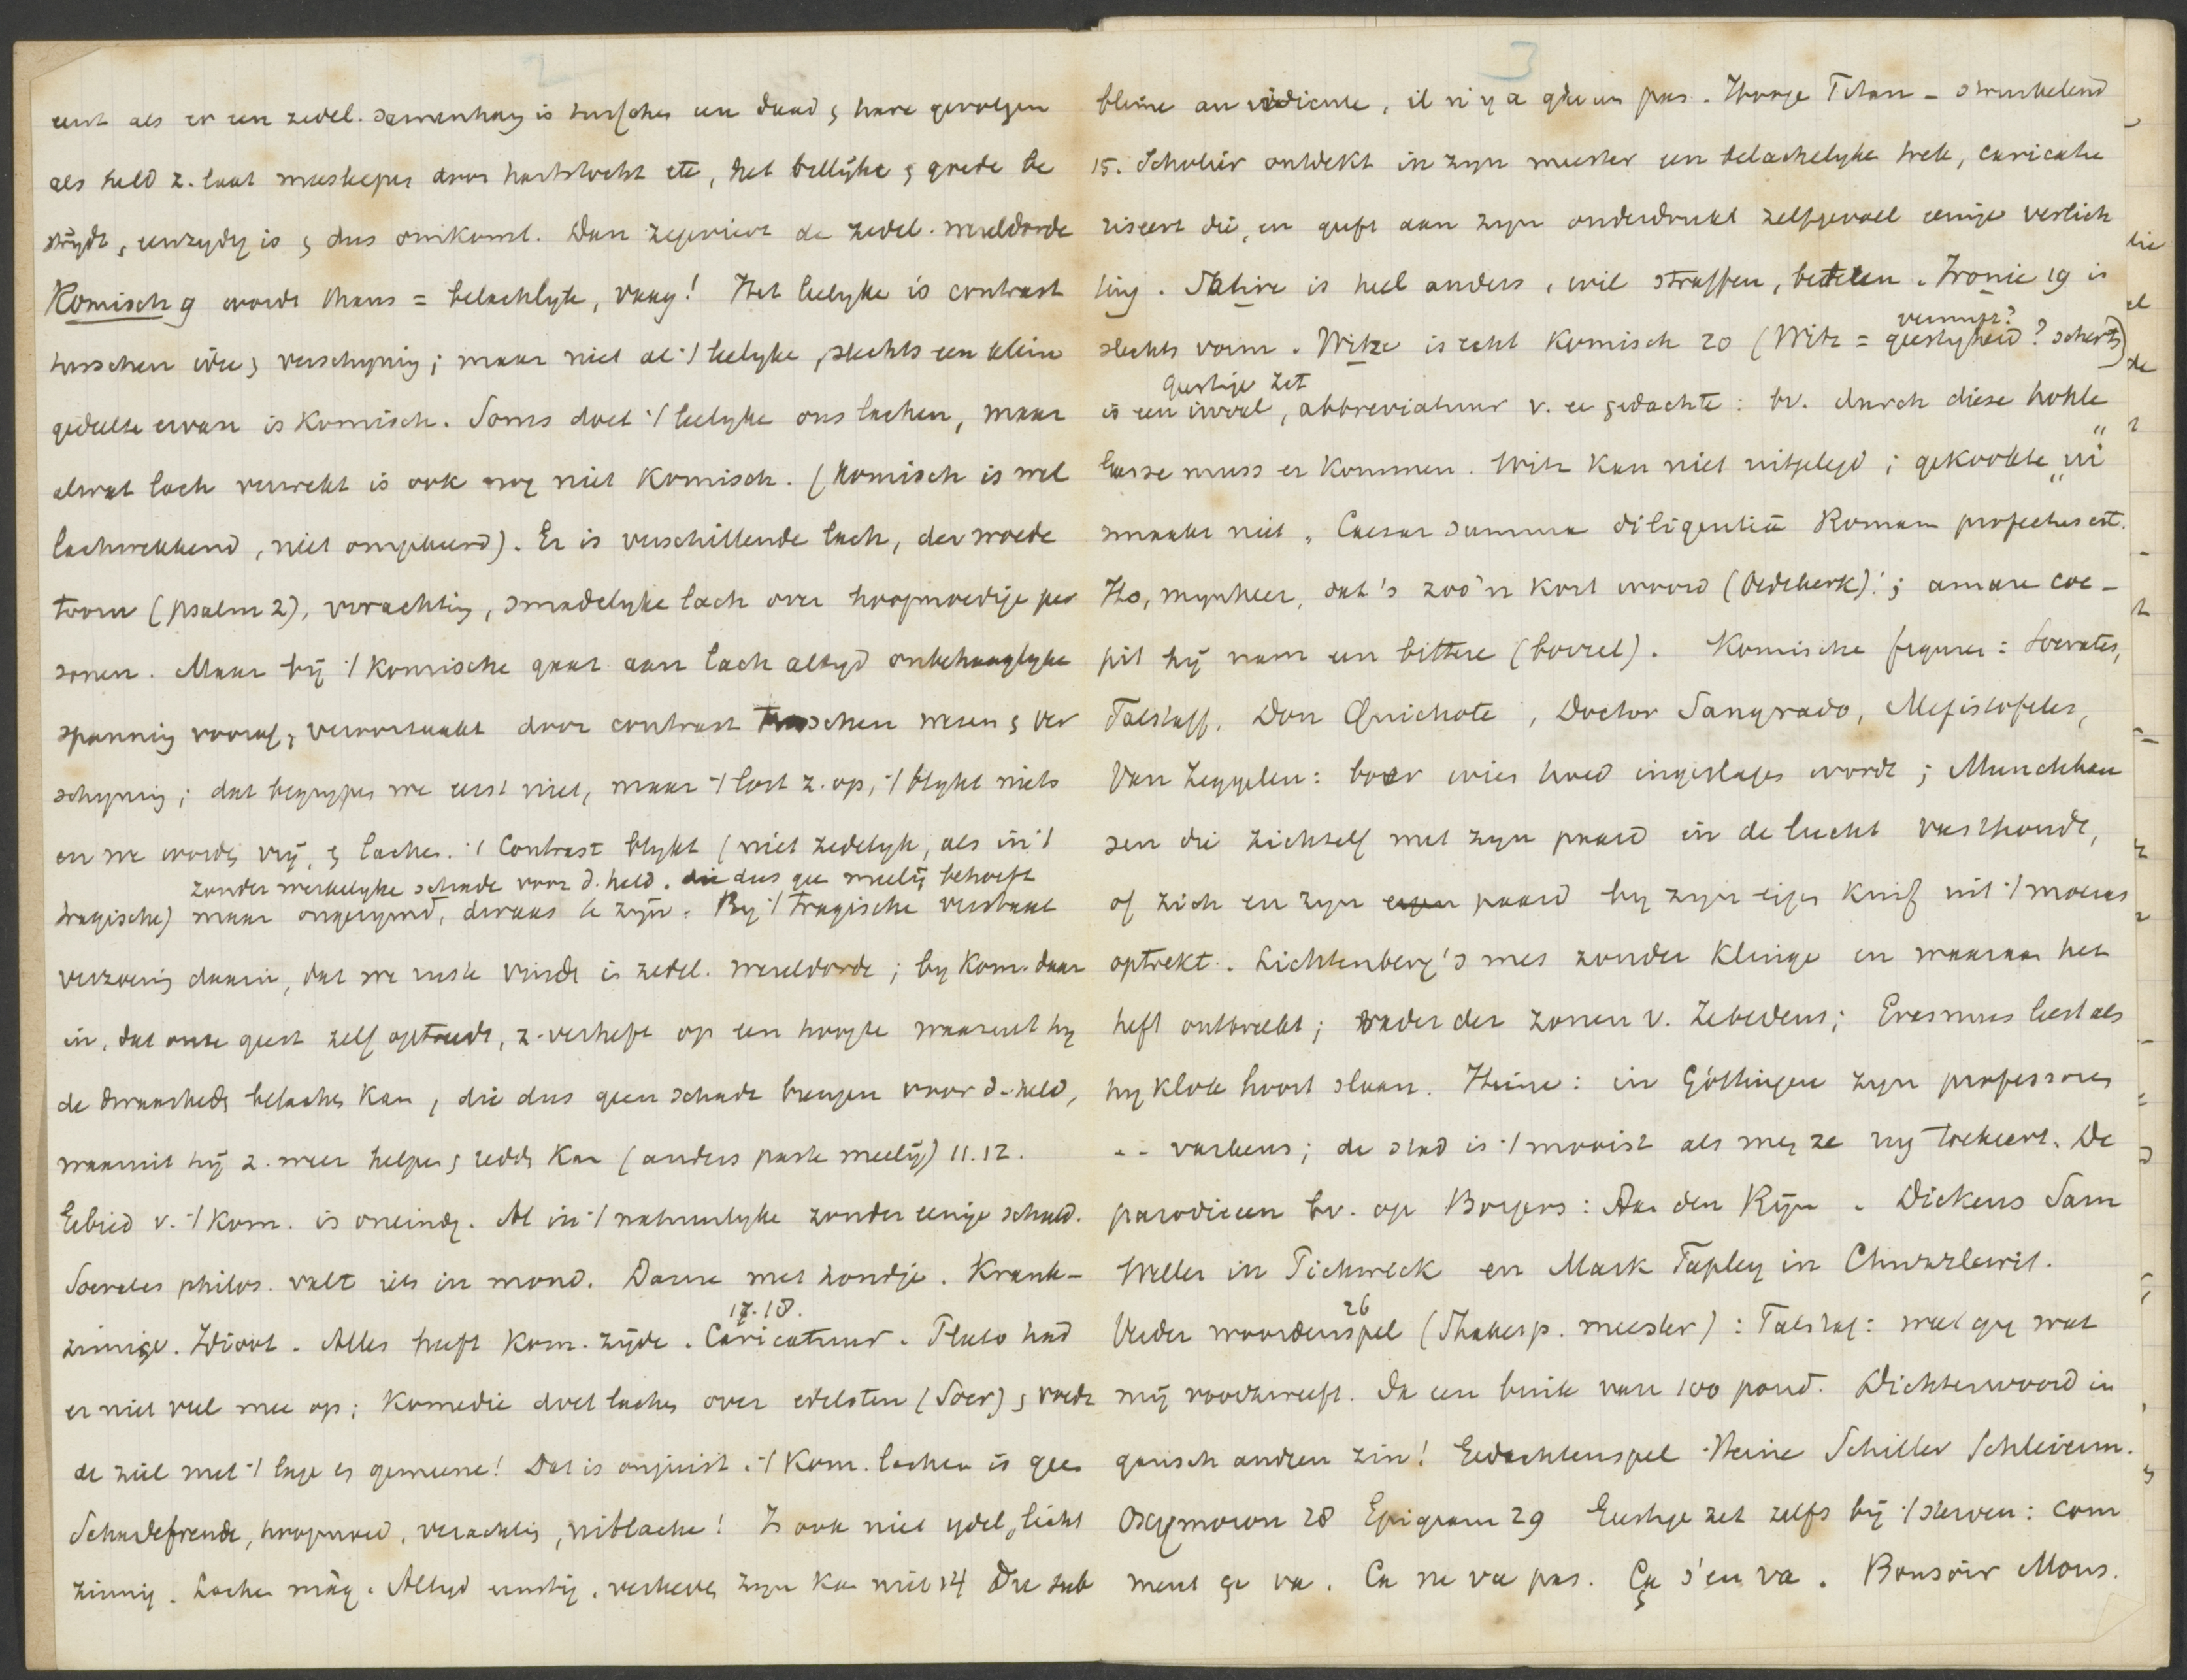 2
eerst als er een zedel. samenhang is tusschen een daad & hare gevolgen
als held z. laat meeslepen door hartstocht etc, het billijke & goede be
strijdt, eenzydig is & dus omkomt. Dan zegeviert de zedel. wereldorde
Komisch 9 wordt thans = belachlyk, vaag! Het leelyke is contrast
tusschen idee & verschyning; maar niet al 't leelyke, slechts een klein
gedeelte ervan is komisch. Soms doet 't leelyke ons lachen, maar
alwat lach verwekt is ook nog niet komisch. (Komisch is wel
lachwekkend, niet omgekeerd). Er is verschillende lach, der woede
toorn (psalm 2), verachting, smadelyke lach over hoogmoedige per
sonen. Maar bij 't komische gaat aan lach altyd onbehaaglyke
spanning vooraf, veroorzaakt door contrast tusschen wezen & ver
schyning; dat begrypen we eerst niet, maar 't lost z. op, 't blykt niets
en we worden vrij, & lachen. 't Contrast blykt (niet zedelyk, als in 't
zonder werkelyke schade voor d. held. die dus gee meelij behoeft
tragische) maar ongerymd, dwaas te zijn. By 't tragische bestaat
verzoening daarin, dat we ruste vinden in zedel. wereldorde; by kom. daar
in, dat onze geest zelf optreedt, z. verheft op een hoogte waaruit hy
de dwaasheden belachen kan, die dus geen schade brengen voor d. held,
waaruit hij z. weer helpen & redden kan (anders paste meelij) 11.12.
Gebied v. 't kom. is oneindig. Al in 't natuurlyke zonder eenige schuld.
Socrates philos. valt iets in mond. Dame met hondje. Krank-
17.18.
zinnige. Idioot. Alles heeft kom. zijde. Caricatuur. Plato had
er niet veel mee op; komedie doet lachen over edelsten (Socr) & voedt
de ziel met 't lage en gemeene! Dat is onjuist. 't Kom. lachen is geen
Schadefreude, hoogmoed, verachting, uitlachen! Is ook niet ydel, licht
zinnig. Lachen màg. Altyd ernstig, verheven zyn kan niet 14 Du sub
3
blime au ridicule, il n'y a qu'un pas. Hooge Titan - struikelend
15. Scholier ontdekt in zyn meester een belachelyke trek, caricatu
riseert die, en geeft aan zyn onderdrukt zelfgevoel eenige verlich
ting. Satire is heel anders, wil straffen, beteren. Ironie 19 is
vernuft?
slechts vorm. Witze is echt komisch 20 (Witz = geestigheid? scherts)
geestige zet
is een inval, abbreviatuur v. ee gedachte: bv. durch diese hohle
Gasse muss er kommen. Witz kan niet uitgelegd; gekookte "ui"
smaakt niet. Caesar summa diligentia Romam profectus est.
Ho, mynheer, dat's zoo'n kort woord (Oedeberk)!; amare coe-
pit hij nam een bittere (borrel). Komische figuren: Socrates,
Falstaff, Don Quichote, Doctor Sangrado, Mefistofeles,
Van Zeggelen: boer wies hoed ingeslagen wordt; Munchhau
sen die zichzelf met zyn paard in de lucht vasthoudt,
of zich en zyn paard by zyn eigen kuif uit 't moeras
optrekt. Lichtenberg's mes zonder klinge en waaraan het
heft ontbreekt; vader der zonen v. Zebedeus; Erasmus leest als
hy klok hoort slaan. Heine: in Göttingen zyn professoren
-- varkens; de stad is 't mooist als men ze rug toekeert. De
parodieen bv. op Borgers: Aan den Rijn. Dickens Sam
Weller in Pickwick en Mark Tapley in Chuzzlewit.
26
Verder woordenspel (Shakesp. meester): Falstaf: weet gy wat
mij voorzweeft. Ja een buik van 100 pond. Dichterwoord in
gansch andren zin! Gedachtenspel Heine Schiller Schleierm.
Oxymoron 28 Epigram 29 Geestige zet zelfs bij 't sterven: Com
ment ça va. Ca ne va pas. Ça s'en va. Bonsoir Mons.